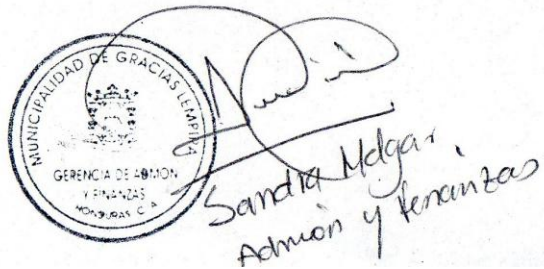 MUNICIPALIDAD DE GRACIAS LEMPIRA
GERENCIA DE ADMON
Y FINANZAS
HONDURAS C A
Sandra Melgar
Admon y fenanzas